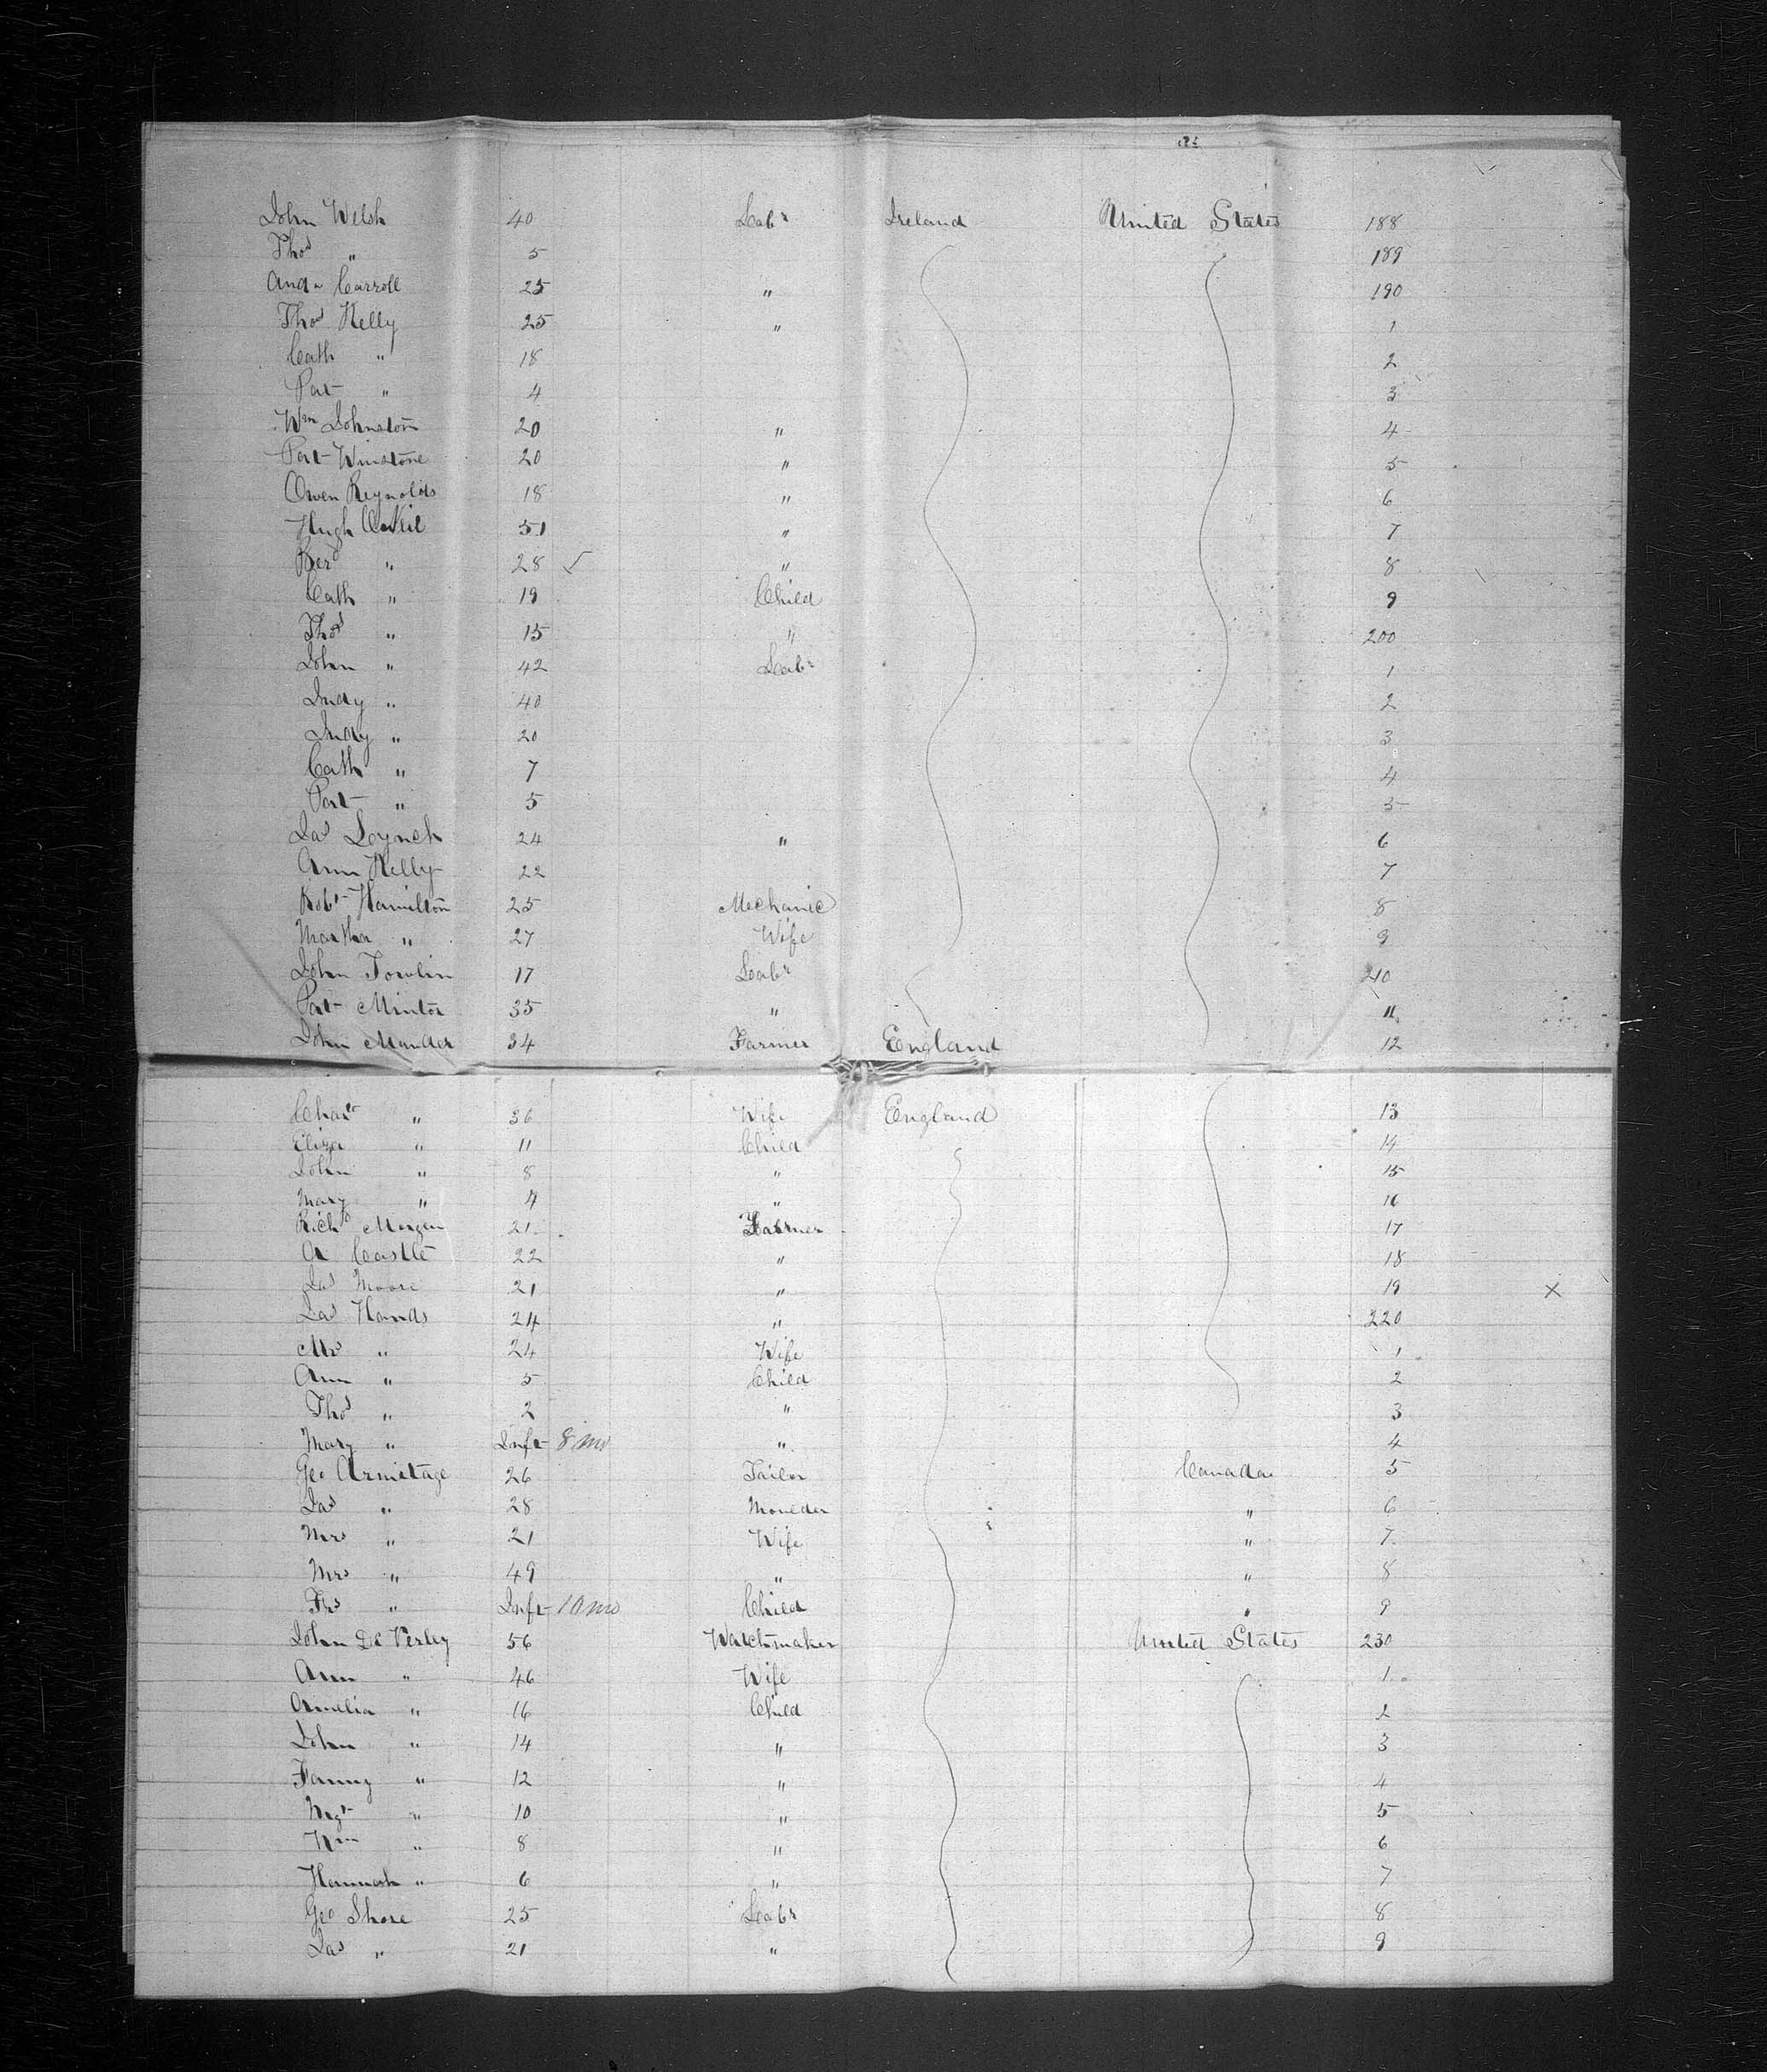 John Welsh 40 Labr Ireland United States 188
Thos " 5 189
Andw Carroll 25 " 190
Thos Kelly 25 " 1
Cath " 18 2
Pat " 4 3
Wm Johnston 20 " 4
Pat Winstone 20 " 5
Owen Reynolds 18 " 6
Hugh O'Neil 51 " 7
" 28 ✓ " 8
Cath " 19 Child 9
Thos " 15 " 200
John " 42 Labr 1
Judy " 40 2
Judy " 20 3
Cath " 7 4
Pat " 5 5
Jas Loynch 24 " 6
Ann Kelly 22 7
Robt Hamilton 25 Mechanic 8
Martha " 27 Wife 9
John Towlin 17 Labr 210
Pat Minton 35 " 11
John Maulder 34 Farmer England 12
" 36 Wife England 13
Eliza " 11 Child 14
John " 8 " 15
Mary " 4 " 16
Richd Morgan 21 17
A Castle 22 " 18
Jas Moore 21 " 19 X
Jas Hands 24 " 220
Mrs " 24 Wife 1
Ann " 5 Child 2
Thos " 2 " 3
Mary " Inft 8 mo " 4
Geo Armitage 26 Tailor Canada 5
Jas " 28 Moulder " 6
Mrs " 21 Wife " 7
Mrs " 49 " " 8
Frs " Inft 10 mo Child " 9
John De Verley 56 Watchmaker United States 230
Ann " 46 Wife 1
Amelia " 16 Child 2
John " 14 " 3
Fanny " 12 " 4
Mgt " 10 " 5
Wm " 8 " 6
Hannah " 6 " 7
Geo Shore 25 Labr 8
Jas " 21 " 9